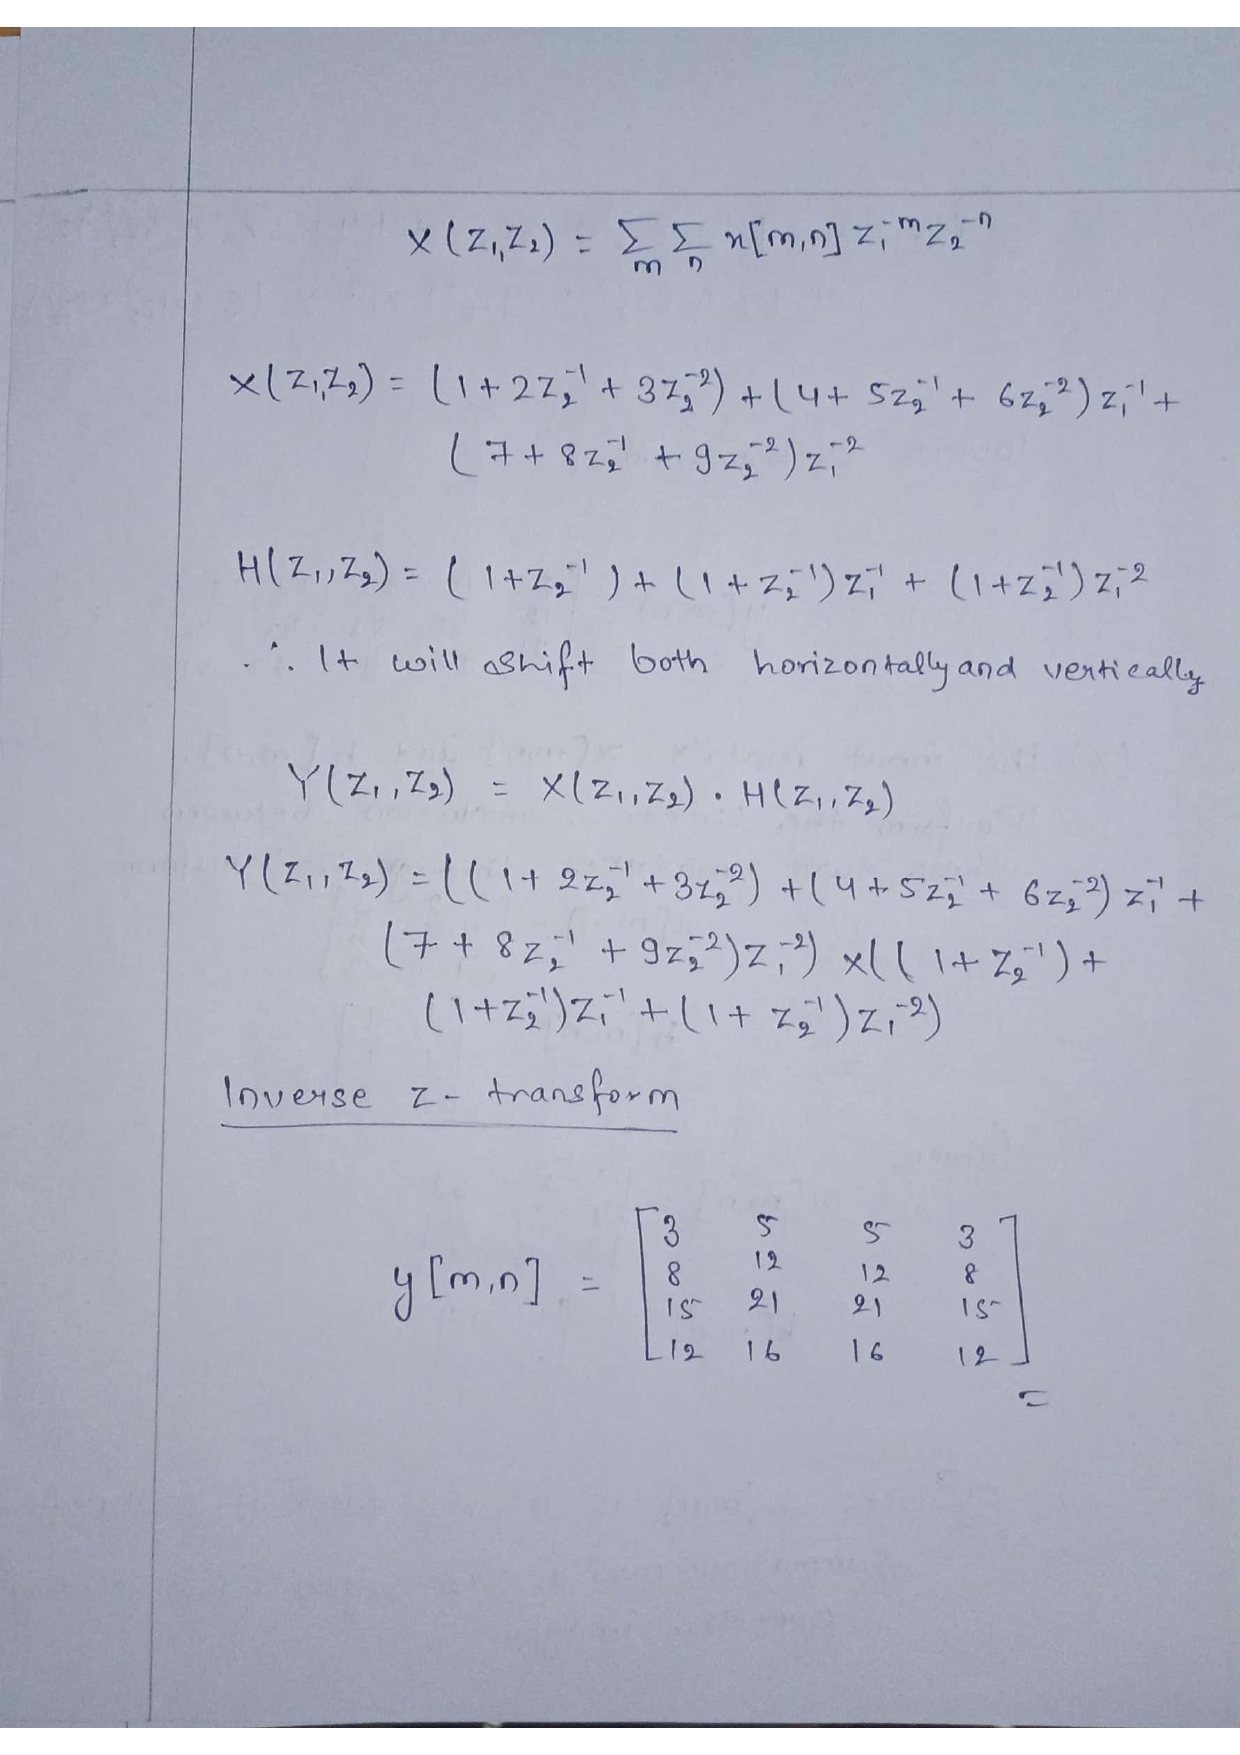 X(Z₁,Z₂) = Σₘ Σₙ x[m,n] Z₁⁻ᵐ Z₂⁻ⁿ
X(Z₁,Z₂) = (1 + 2Z₂⁻¹ + 3Z₂⁻²) + (4 + 5Z₂⁻¹ + 6Z₂⁻²) Z₁⁻¹ +
(7 + 8Z₂⁻¹ + 9Z₂⁻²) Z₁⁻²
H(Z₁,Z₂) = (1+Z₂⁻¹) + (1+Z₂⁻¹) Z₁⁻¹ + (1+Z₂⁻¹) Z₁⁻²
∴ It will shift both horizontally and vertically
Y(Z₁,Z₂) = X(Z₁,Z₂) . H(Z₁,Z₂)
Y(Z₁,Z₂) = ((1 + 2Z₂⁻¹ + 3Z₂⁻²) + (4 + 5Z₂⁻¹ + 6Z₂⁻²) Z₁⁻¹ +
(7 + 8Z₂⁻¹ + 9Z₂⁻²) Z₁⁻²) x ((1 + Z₂⁻¹) +
(1+Z₂⁻¹) Z₁⁻¹ + (1 + Z₂⁻¹) Z₁⁻²)
Inverse z - transform
3 5 5 3
8 12 12 8
y[m,n] =
15 21 21 15
12 16 16 12
=